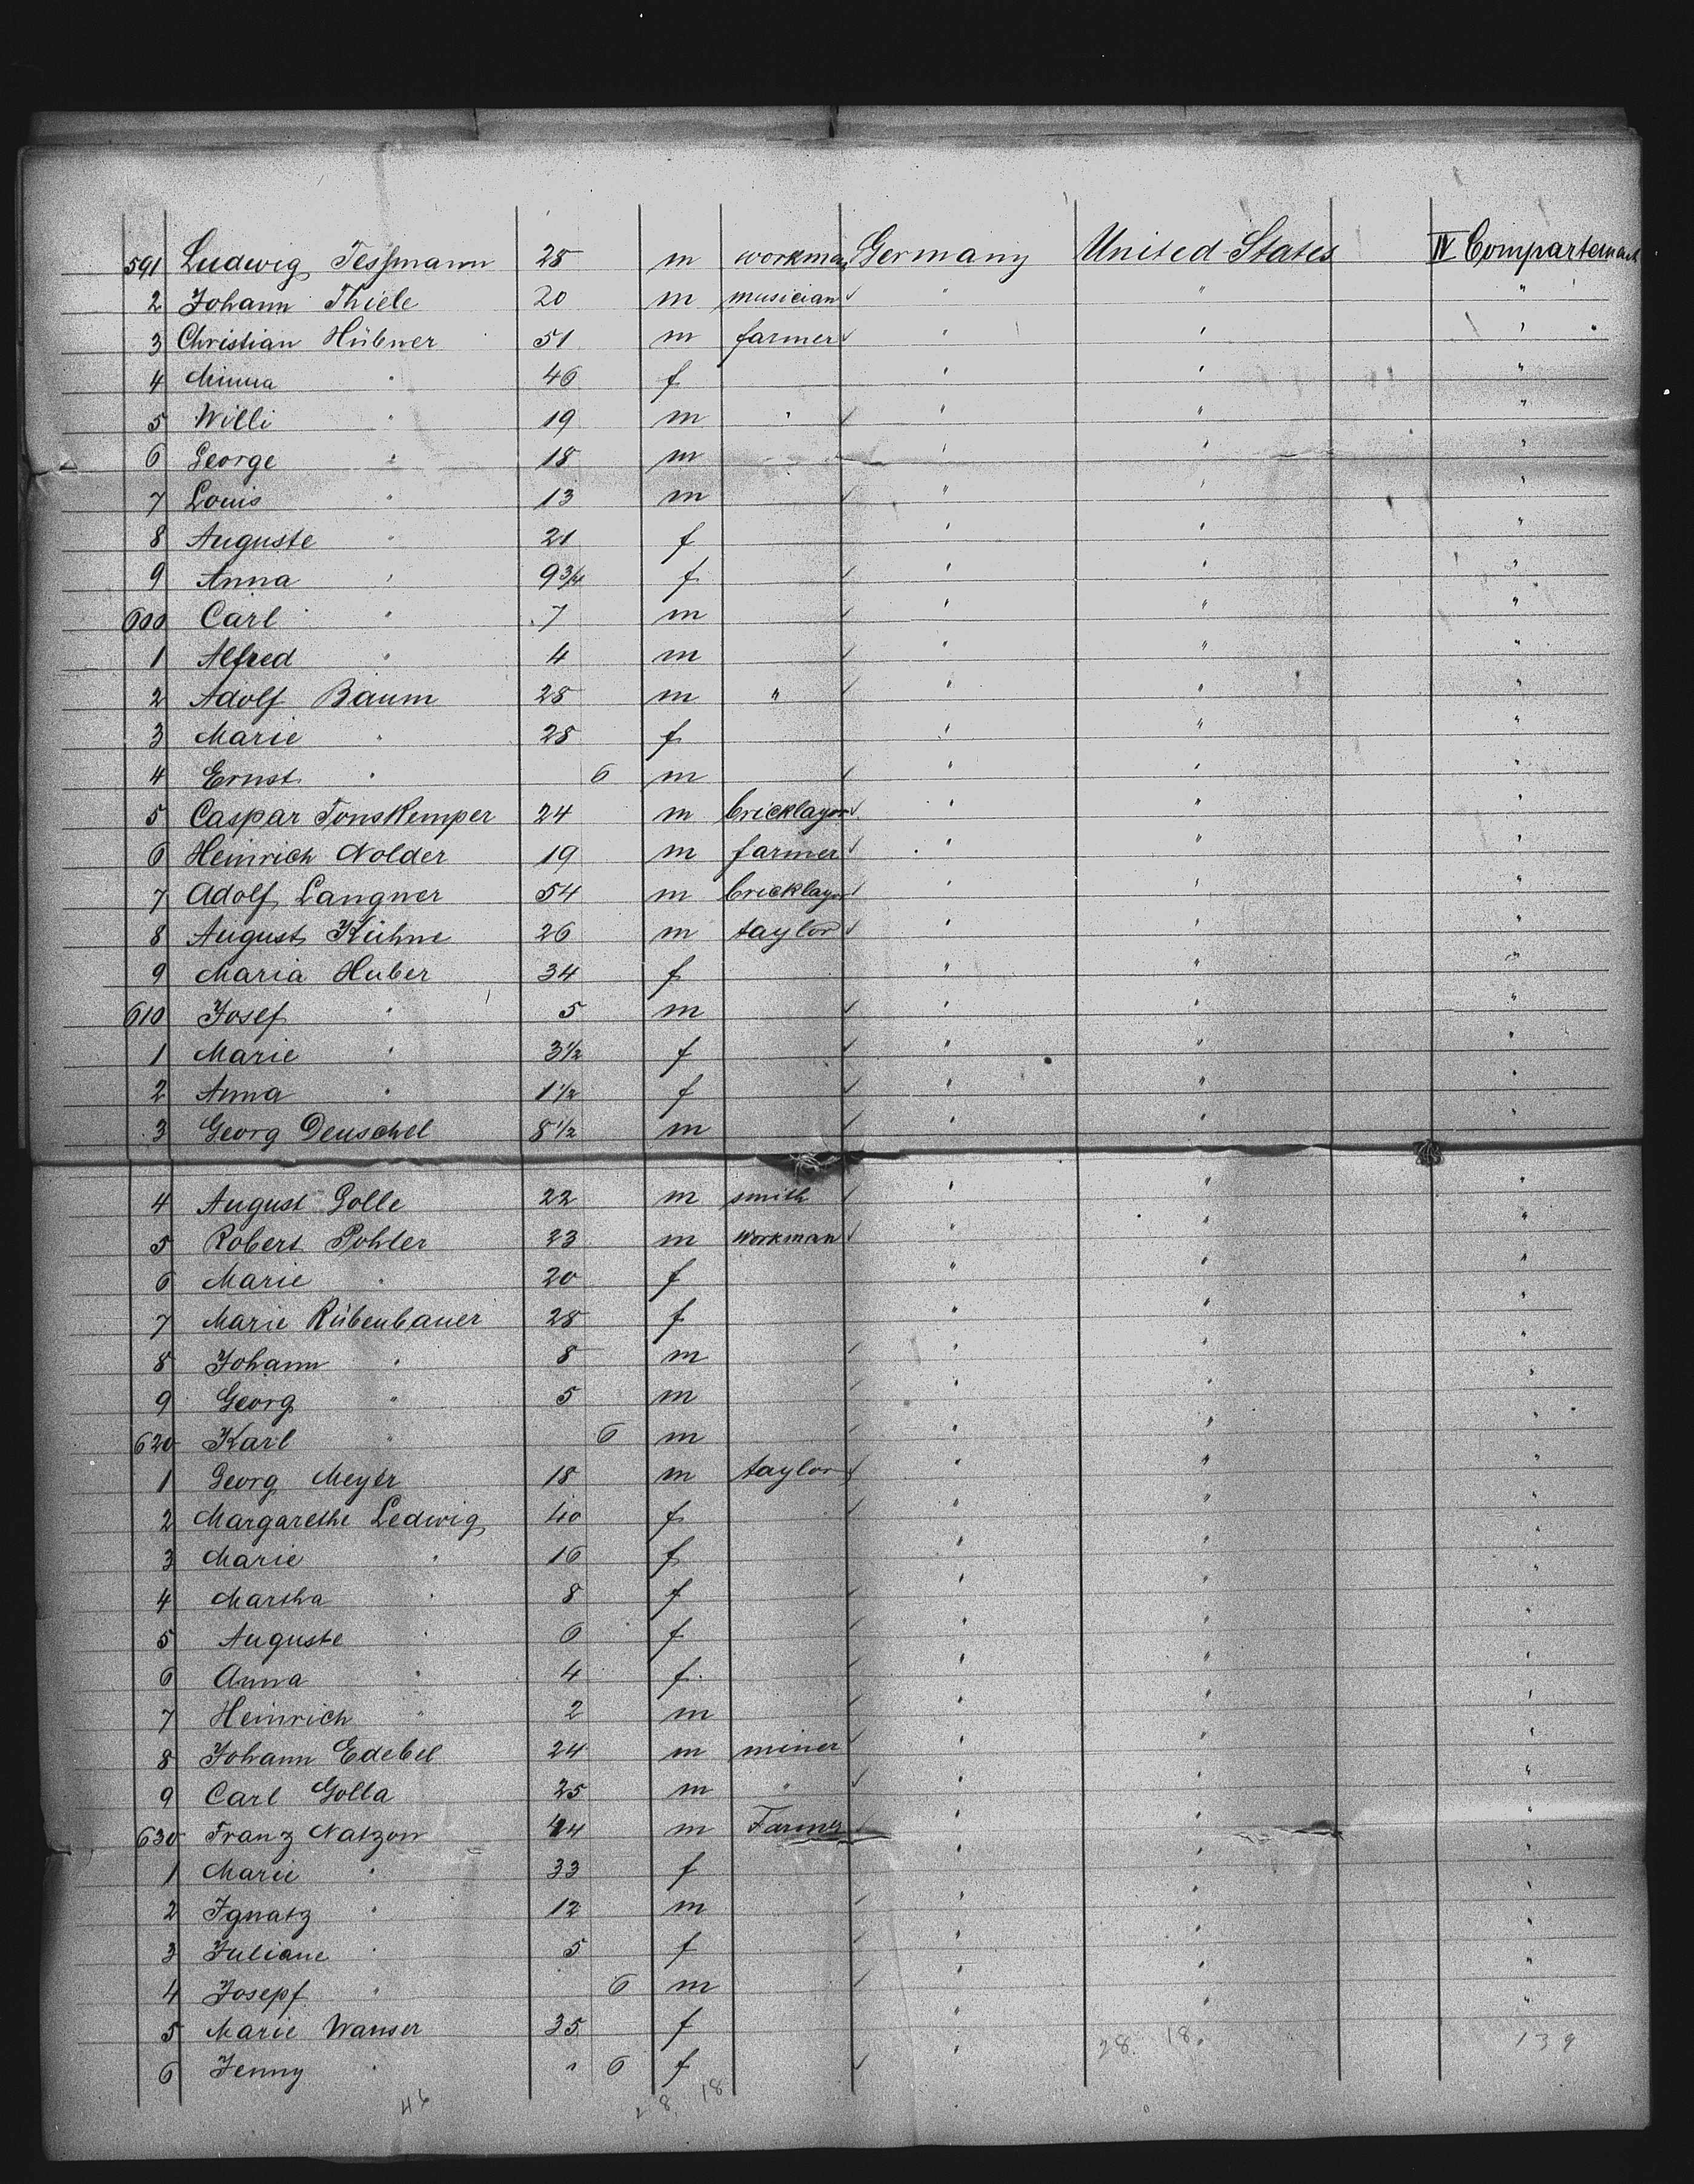 591 Ludwig Tessmann 28 m workman Germany United States IV Compartement
2 Johann Thiele 20 m musician " " "
3 Christian Hübner 51 m farmer " " "
4 Minna " 46 f " " "
5 Willi " 19 m " " " "
6 George " 18 m " " "
7 Louis " 13 m " " "
8 Auguste " 21 f " " "
9 Anna " 9 3/4 f " " "
600 Carl " 7 m " " "
1 Alfred " 4 m " " "
2 Adolf Baum 28 m " " " "
3 Marie " 28 f " " "
4 Ernst " 6 m " " "
5 Caspar Tonskemper 24 m bricklayer " " "
6 Heinrich Nolder 19 m farmer " " "
7 Adolf Langner 54 m bricklayer " " "
8 August Kühne 26 m taylor " " "
9 Maria Huber 34 f " " "
610 Josef " 5 m " " "
1 Marie " 3 1/2 f " " "
2 Anna " 1 1/2 f " " "
3 Georg Deuschel 8 1/2 m " " "
4 August Golle 22 m smith " " "
5 Robert Pohler 23 m workman " " "
6 Marie " 20 f " " "
7 Marie Rübenbauer 28 f " " "
8 Johann " 8 m " " "
9 Georg " 5 m " " "
620 Karl " 6 m " " "
1 Georg Meyer 18 m taylor " " "
2 Margarethe Ledwig 40 f " " "
3 Marie " 16 f " " "
4 Martha " 8 f " " "
5 Auguste " 6 f " " "
6 Anna " 4 f " " "
7 Heinrich " 2 m " " "
8 Johann Edebel 24 m miner " " "
9 Carl Golla 25 m " " " "
630 Franz Natzon 44 m Farmer " " "
1 Marie " 33 f " " "
2 Ignatz " 12 m " " "
3 Juliane " 5 f " " "
4 Josepf " 6 m " " "
5 Marie Wanser 35 f " " "
6 Jenny " " 6 f " 28. 18. 139
46 28. 18